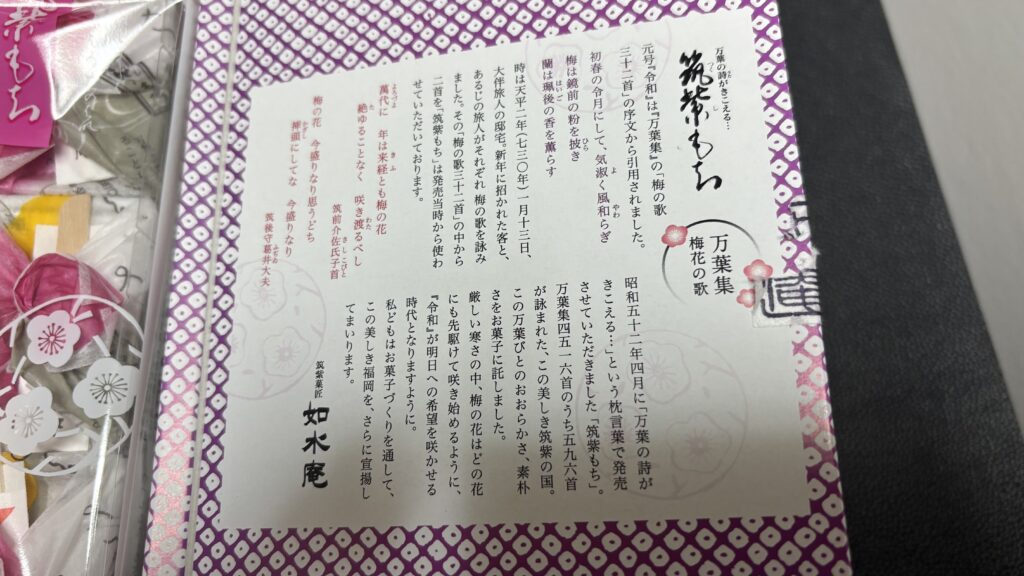 万葉の詩がきこえる…
筑紫もち
万葉集
梅花の歌
元号『令和』は『万葉集』の「梅の歌
三十二首」の序文から引用されました。
初春の令月にして、気淑く風和らぎ
梅は鏡前の粉を披き
蘭は珮後の香を薫らす
時は天平二年(七三〇年)一月十三日、
大伴旅人の邸宅。新年に招かれた客と、
あるじの旅人がそれぞれ 梅の歌を詠み
ました。その「梅の歌三十二首」の中から
二首を「筑紫もち」は発売当時から使わ
せていただいております。
萬代に 年は来経とも梅の花
絶ゆることなく 咲き渡るべし
筑前介佐氏子首
梅の花 今盛りなり思うどち
挿頭にしてな 今盛りなり
筑後守葛井大夫
昭和五十二年四月に「万葉の詩が
きこえる…」という枕言葉で発売
させていただきました「筑紫もち」。
万葉集四五一六首のうち五九六首
が詠まれた、この美しき筑紫の国。
この万葉びとのおおらかさ、素朴
さをお菓子に託しました。
厳しい寒さの中、梅の花はどの花
にも先駆けて咲き始めるように、
『令和』が明日への希望を咲かせる
時代となりますように。
私どもはお菓子づくりを通して、
この美しき福岡を、さらに宣揚し
てまいります。
筑紫菓匠
如水庵
紫もち